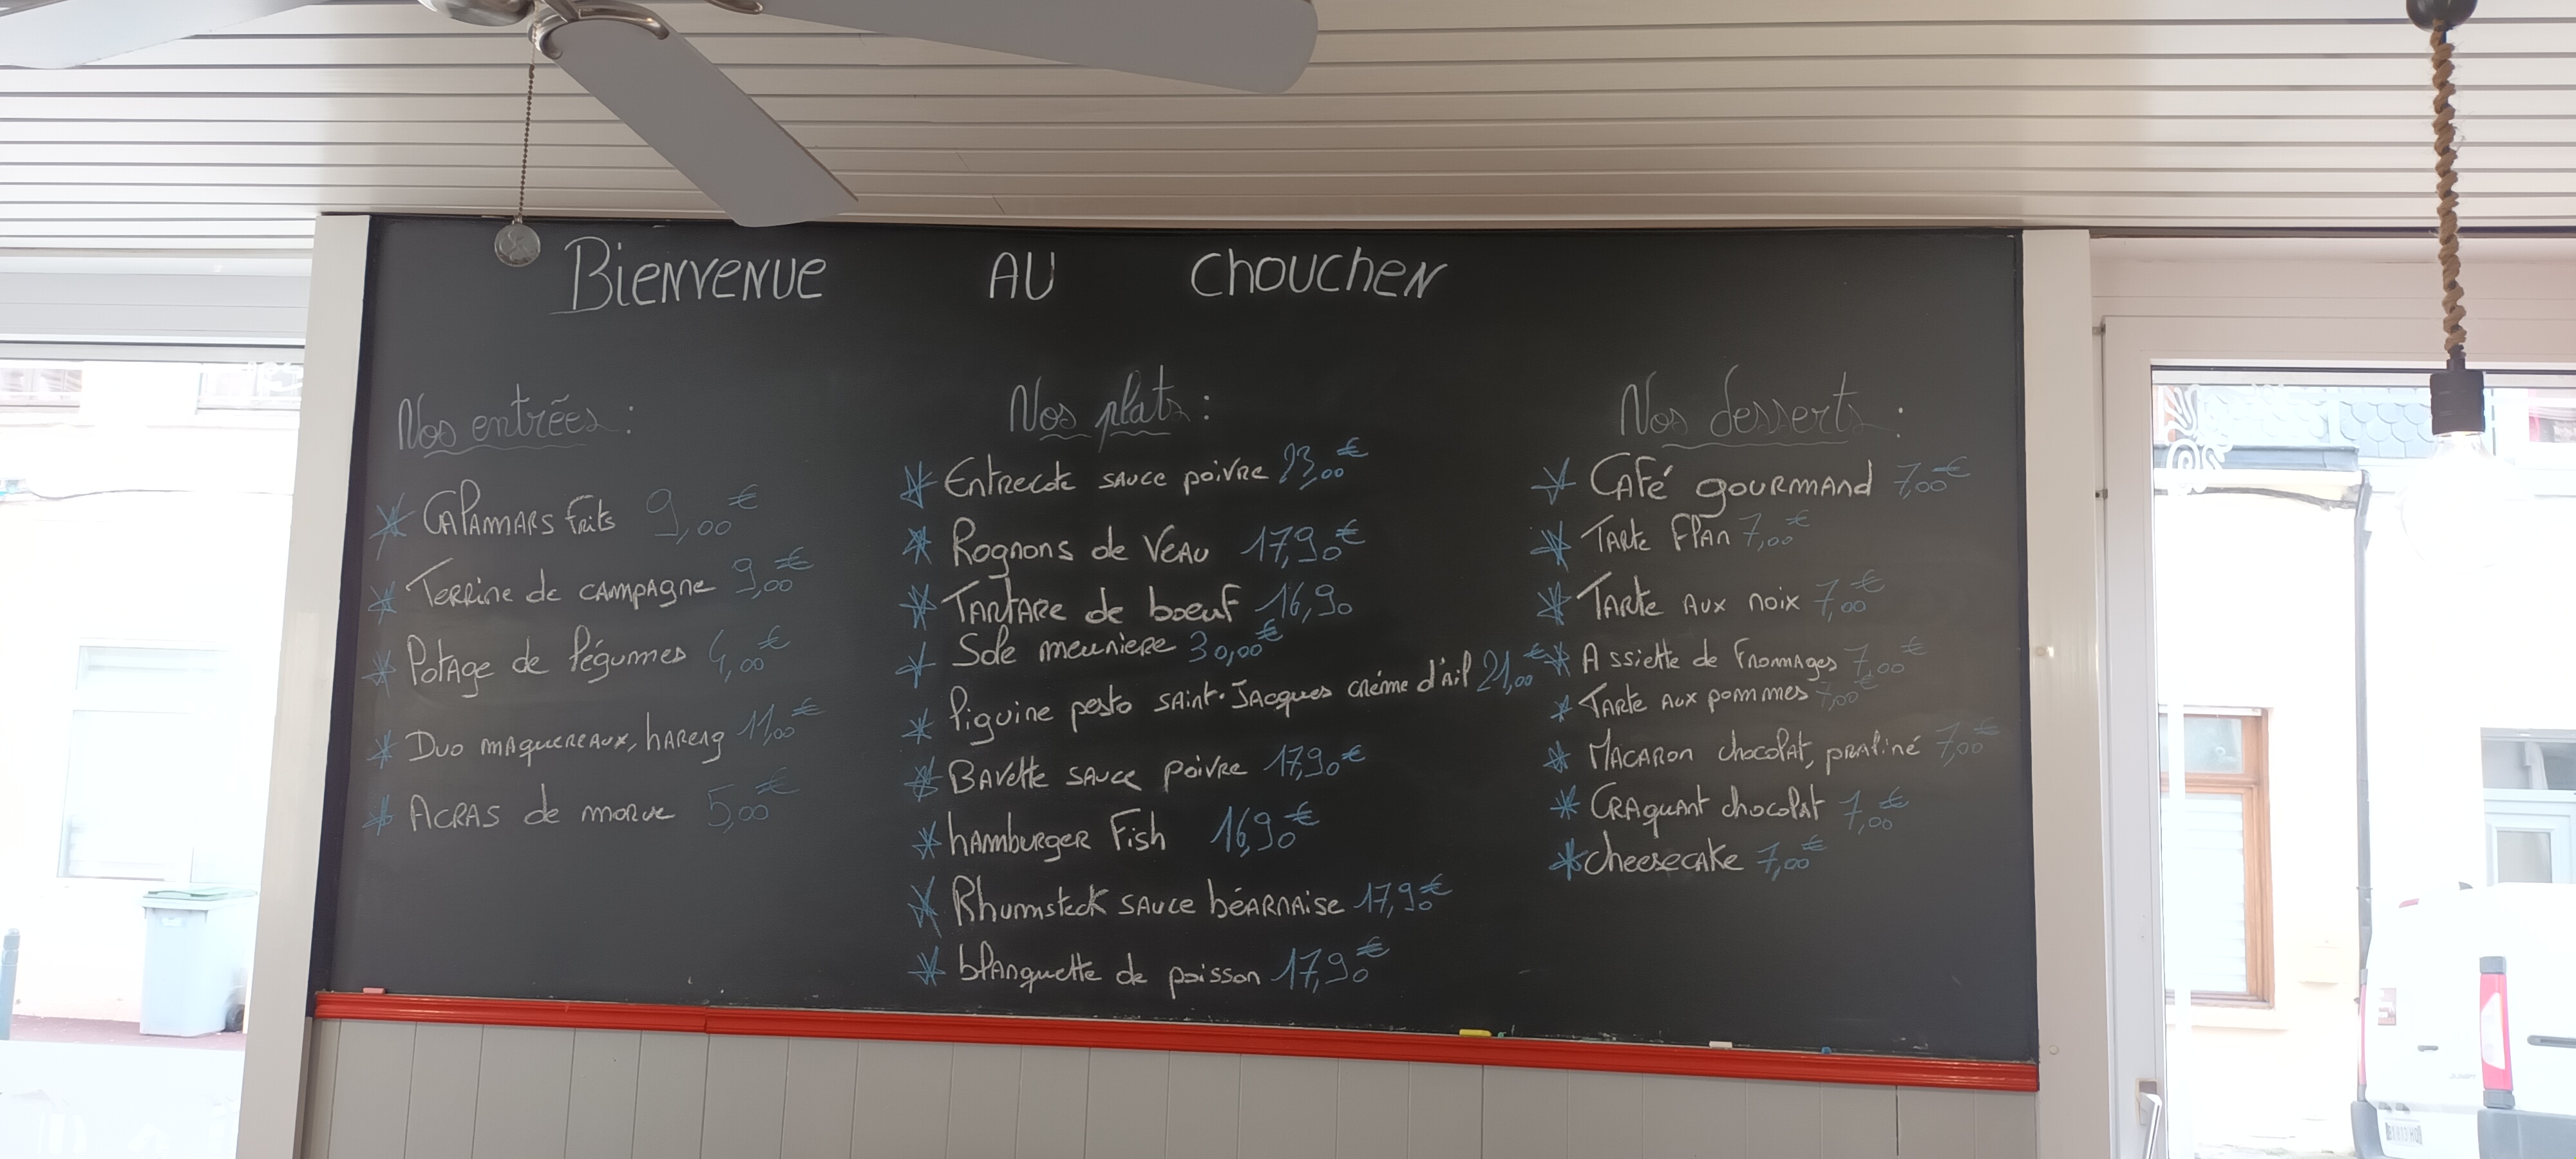 BIENVENUE AU CHOUCHEN
Nos entrées :
* CAlAMARS frits 9,00€
* Terrine de CAMPAgne 9,00€
* PotAge de légumes 4,00€
* Duo MAquereAux, hAreng 11,00€
* ACRAS de morue 5,00€
Nos plats :
* Entrecote sauce poivre 23,00€
* Rognons de VeAu 17,90€
* TARTARE de boeuf 16,90
* Sole meuniere 30,00€
* liguine pesto sAint-JAcques crème d'Ail 21,00€
* BAvette sAuce poivre 17,90€
* hAmburger Fish 16,90€
* Rhumsteck sAuce béARNAise 17,90€
* blAnquette de poisson 17,90€
Nos desserts :
* CAFé gourmAnd 7,00€
* TARte FlAn 7,00€
* TARte Aux noix 7,00€
* Assiette de FromAges 7,00€
* TARte Aux pommes 7,00€
* MACARon chocolAt, prAliné 7,00€
* CRAquAnt chocolAt 7,00€
* cheesecAke 7,00€